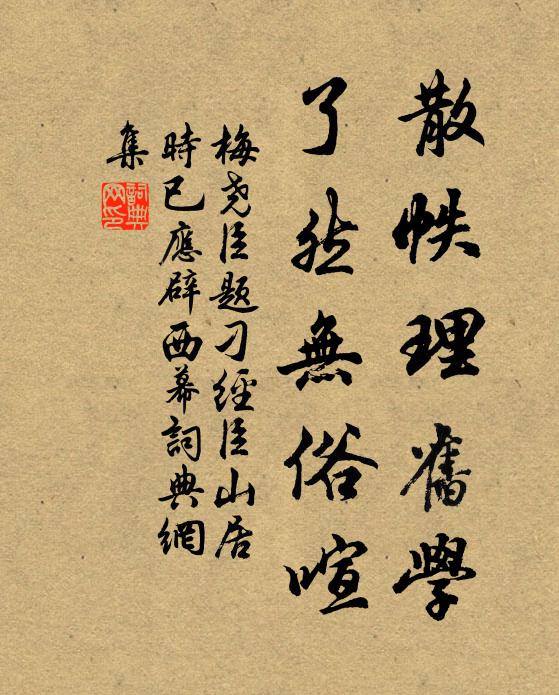 散帙理舊學
了然無俗喧
梅堯臣題刁經臣山居
時已應辟西幕詞典網
集
詞典网印